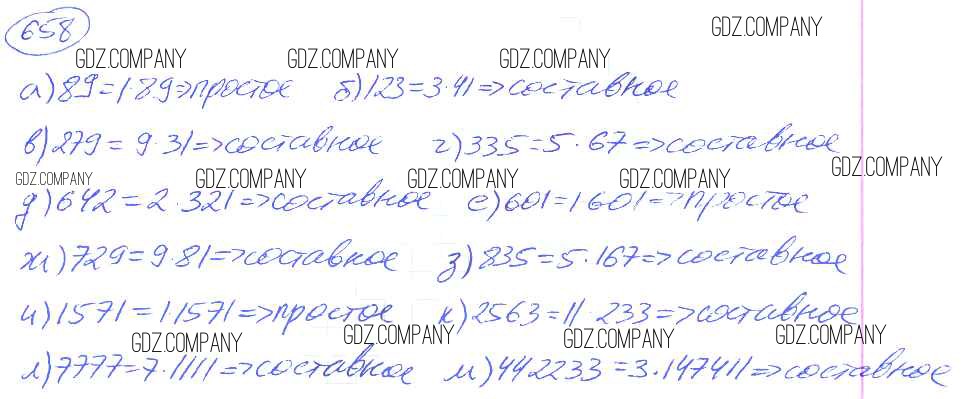 658
GDZ.COMPANY
GDZ.COMPANY GDZ.COMPANY GDZ.COMPANY
а) 89=1·89=>простое б) 123=3·41=>составное
в) 279=9·31=>составное г) 335=5·67=>составное
GDZ.COMPANY
GDZ.COMPANY GDZ.COMPANY GDZ.COMPANY GDZ.COMPANY
д) 642=2·321=>составное е) 601=1 601=>простое
ж) 729=9·81=>составное з) 835=5·167=>составное
и) 1571=1.1571=>простое к) 2563=11·233=>составное
GDZ.COMPANY GDZ.COMPANY GDZ.COMPANY GDZ.COMPANY
л) 7777=7·1111=>составное м) 442233=3·147411=>составное